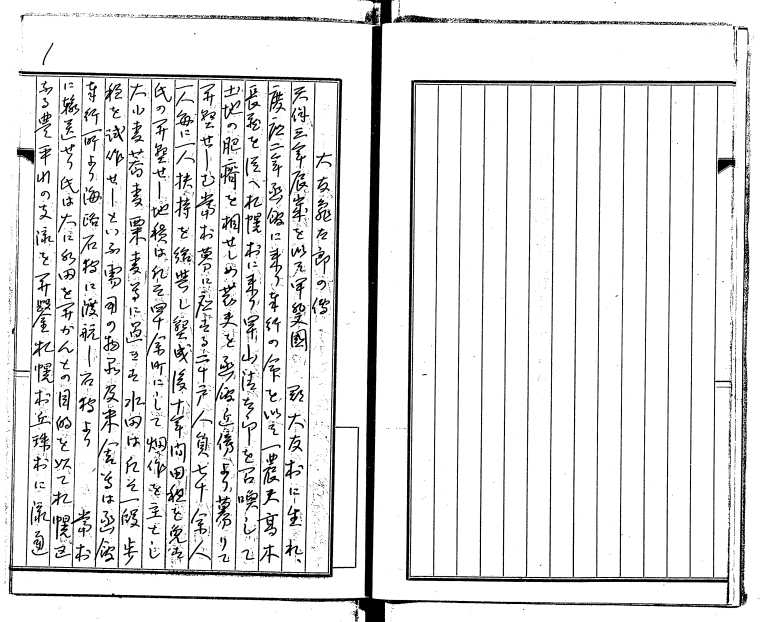 1
大友亀太郎の伝
天保三年辰歳を以て甲斐国 郡大友村に生れ、
慶応二年函館に来り奉行の命を以て農夫高木
長蔵を従へ札幌村に来り早山清太郎を召喚して
土地の肥瘠を相せしめ農夫を函館近傍より募りて
開墾せしむ当村募に応ずる二十戸人員七十余人
一人毎に一人扶持を給与し墾成後十年間田租を免す
氏の開墾せし地積は凡そ四十余町にして畑作を主とし
大小麦蕎麦粟麦等に過きす水田は凡そ一段歩
程を試作せしといふ需用の物品及米塩等は函館
奉行所より海路石狩に渡航し石狩より 当村
に輸送せり氏は大に水田を開かんとの目的を以て札幌区
なる豊平川の支流を開鑿札幌村丘珠村に流通